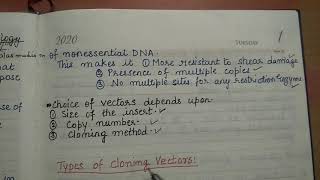 2020
TUESDAY
1
of nonessential DNA.
This makes it ① More resistant to shear damage
② Presence of multiple copies
③ No multiple sites for any restriction enzyme
• Choice of vectors depends upon
① Size of the insert.
② Copy number.
③ Cloning method.
Types of cloning Vectors: